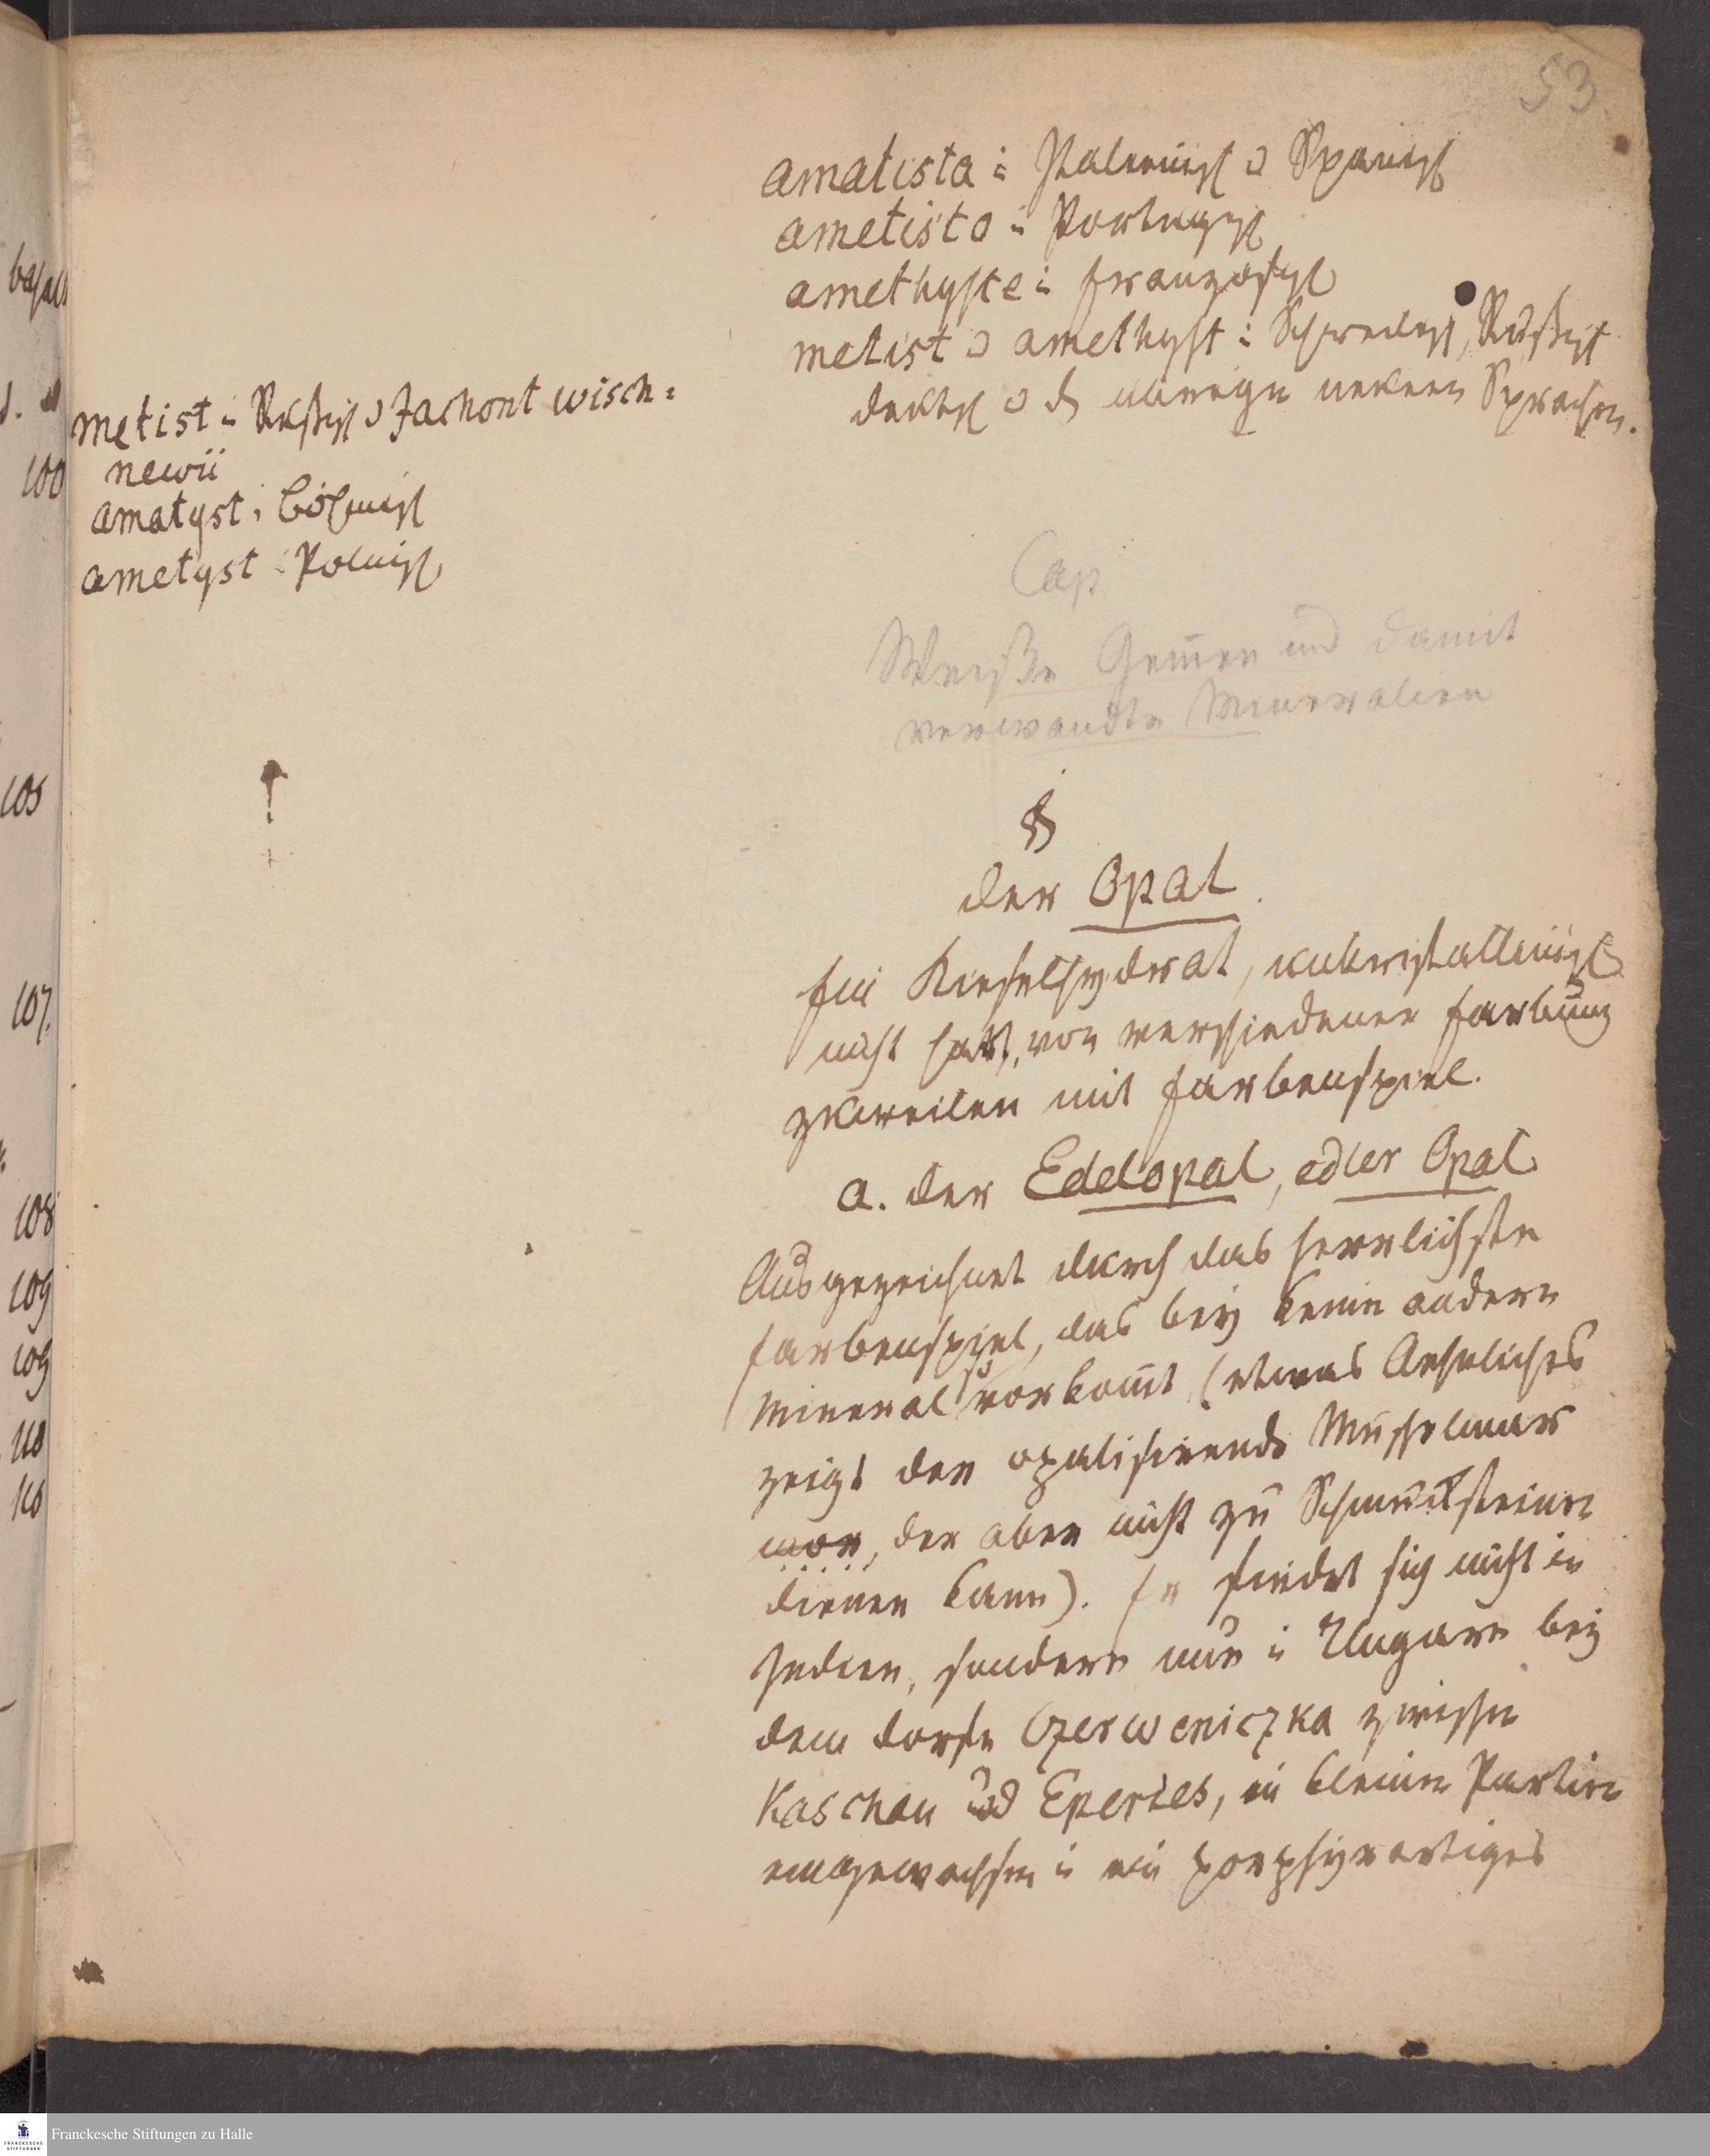 53.
amatista i Italienisch u Spanisch
ametisto i Portugisisch
amethyste i französisch
metist u amethyst i Schwedisch, Rußisch
deutsch u d übrigen neueren Sprachen.
metist i Rußisch u Jachont wisch=
newii
amatyst i böhmisch
ametyst i Polnisch
Cap
Weiße Gem̄en und damit
verwandte Mineralien
§
der Opal.
Ein Kieselhydrat, unkristallinisch
nicht hart, von verschiedener Farbung
zuweilen mit Farbenspiel.
a. der Edelopal, edler Opal
Ausgezeichnet durch das herrlichste
Farbenspiel, das bey keinen andern
Mineral so vorkom̄t (etwas Aehnliches
zeigt der opalisirende Muschelmar
mor, der aber nicht zu Schmucksteinen
dienen kann). Er findet sich nicht in
Indien, sondern nur i Ungarn bey
dem Dorfe Czerweniczka zwischen
Kaschau und Eperies, in kleinen Partien
eingewachsen i ein porphyrartiges
basalt
100
105
107.
108
109
109
110
110
Franckesche Stiftungen zu Halle